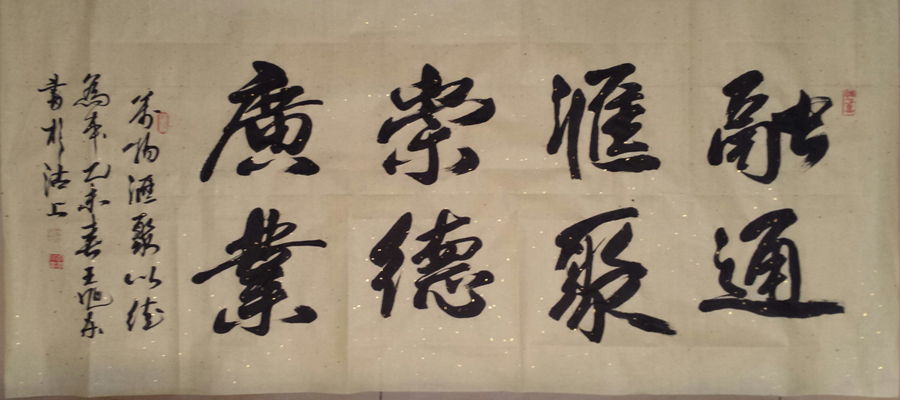 融通
滙聚
崇德
廣業
萬物滙聚以德
為本乙未春王
書於沽上